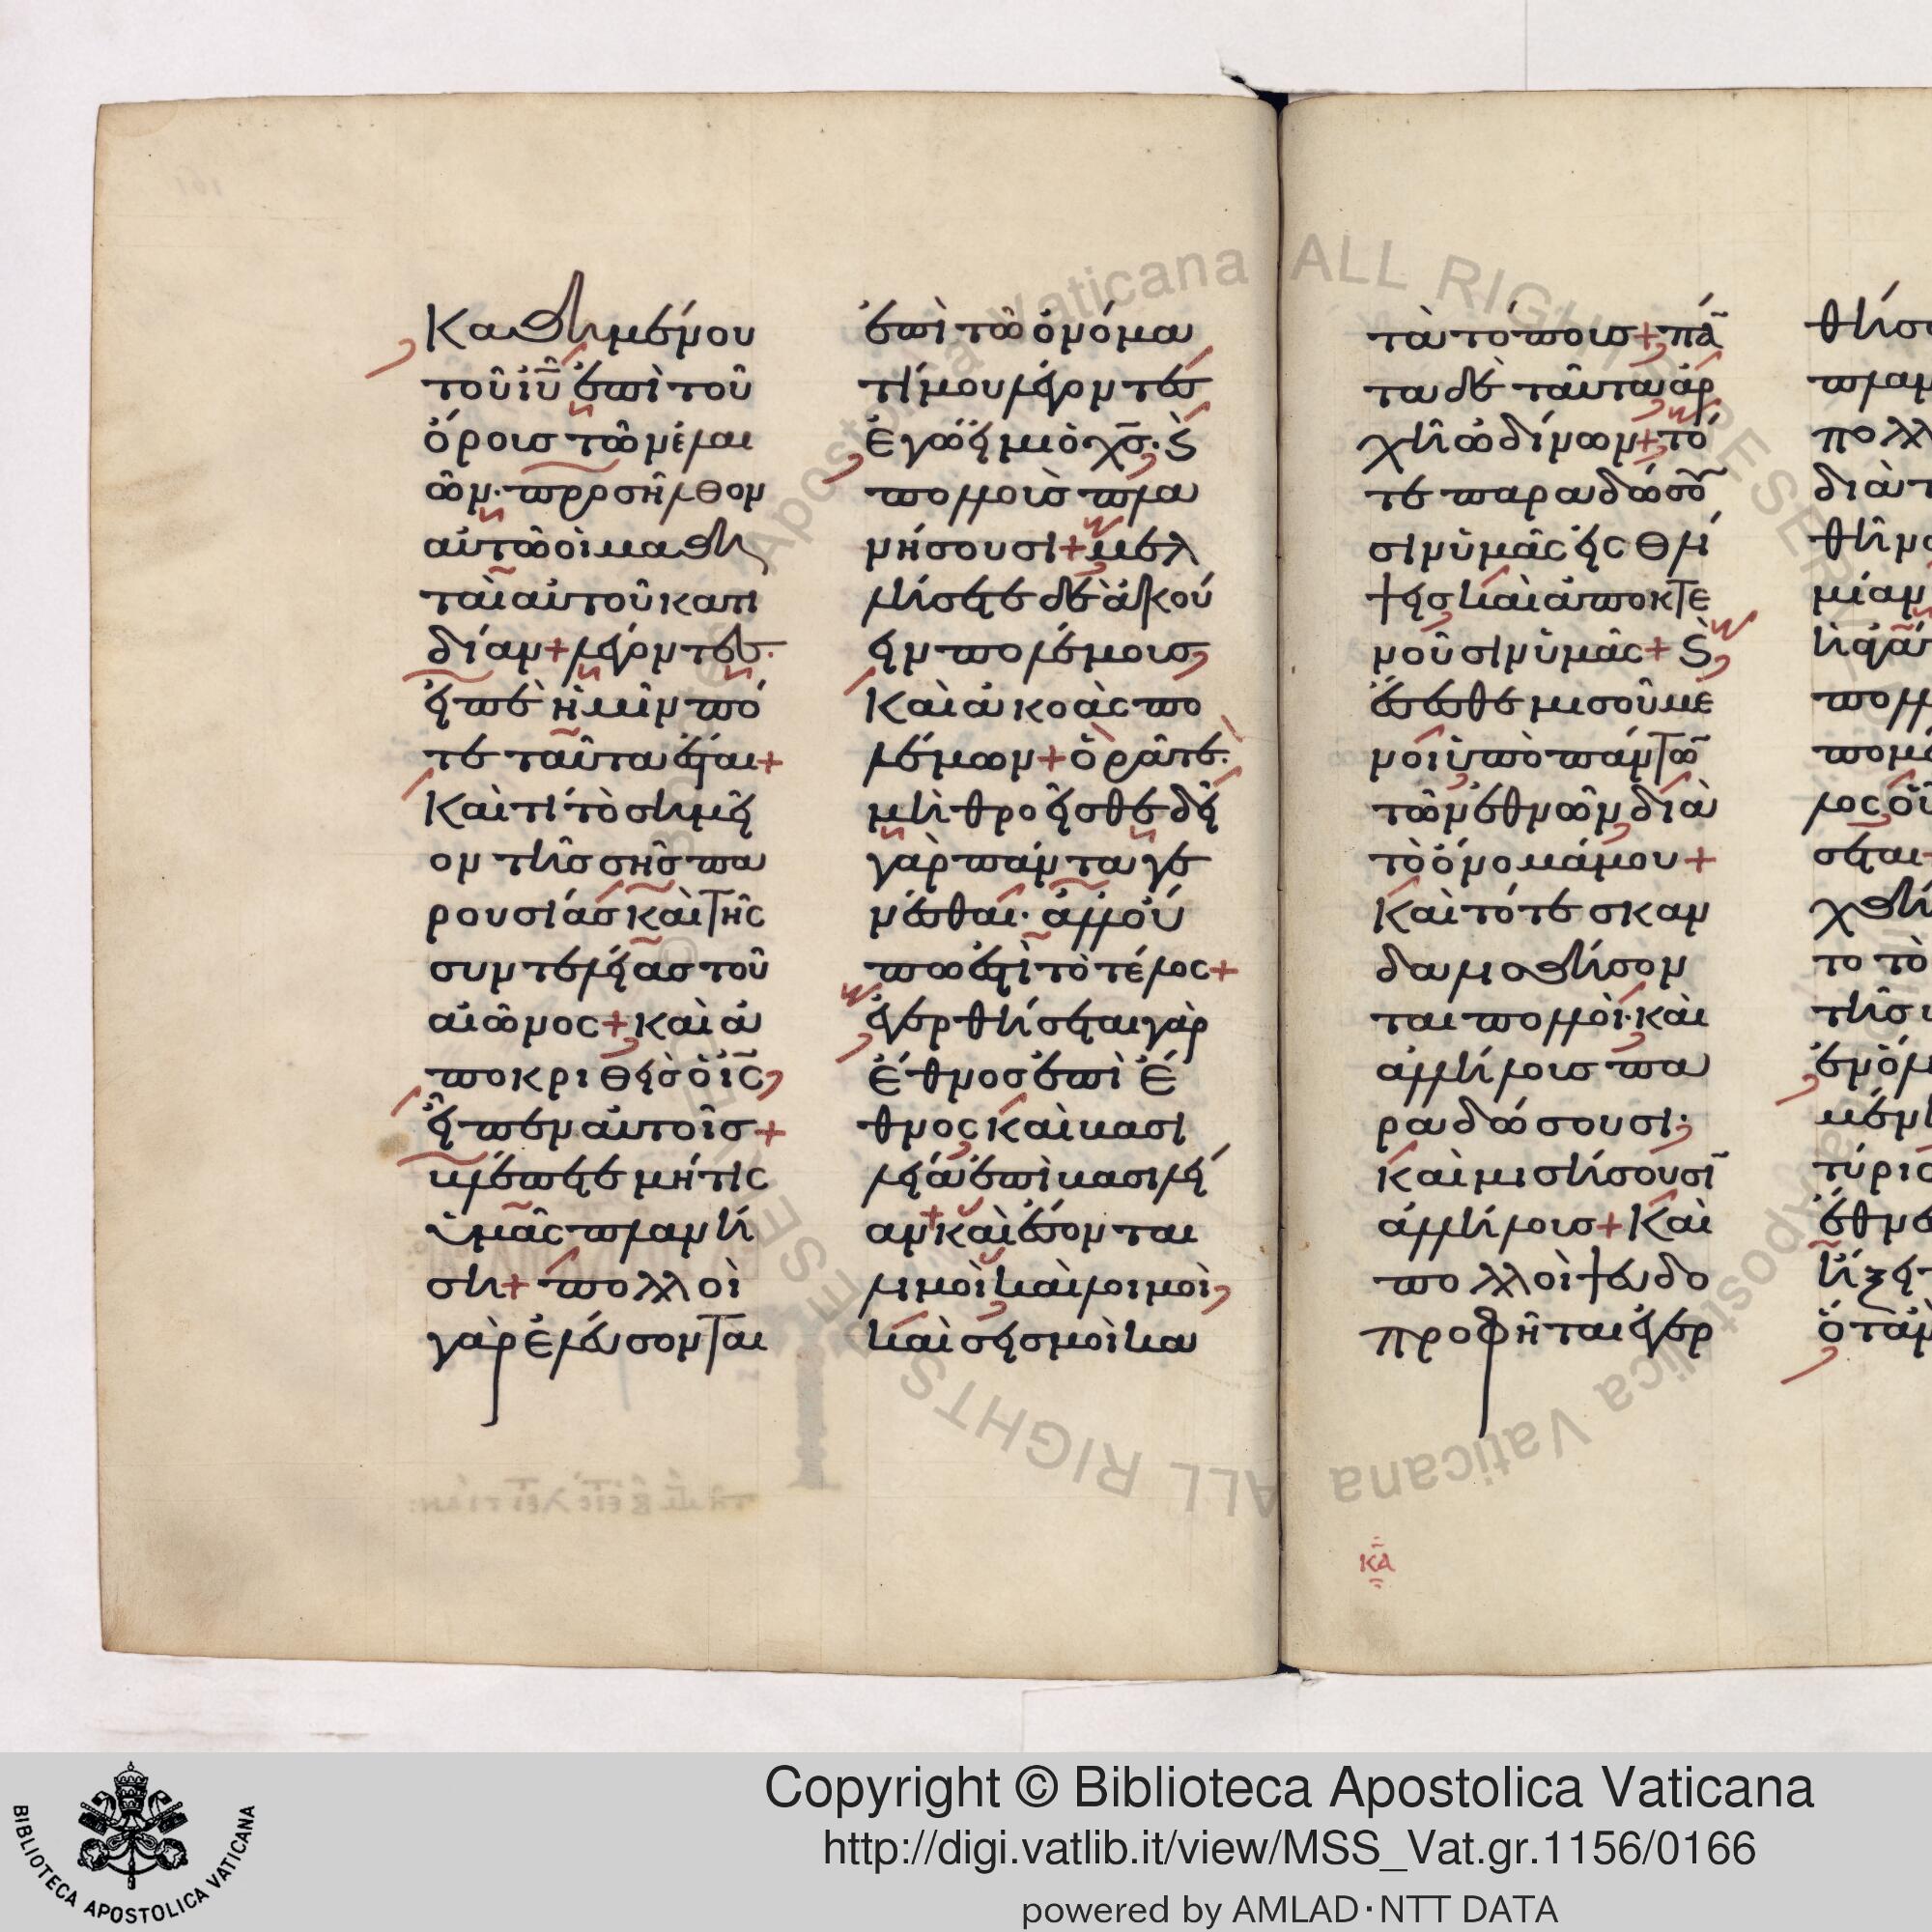 Καθημένου
τοῦ ἰῦ ἐπὶ τοῦ
ὄρους τῶν ἐλαι
ῶν· προσῆλθον
αὐτῶ οἱ μαθη
ταὶ αὐτοῦ κατ ἰ
δίαν + λέγοντες·
εἰπὲ ἡμῖν πό
τε ταῦτα ἔσται +
καὶ τί τὸ σημεῖ
ον τῆς σῆς πα
ρουσίας καὶ τῆς
συντελείας τοῦ
αἰῶνος + καὶ ἀ
ποκριθεὶς ὁ ις
εἶπεν αὐτοῖς +
βλέπετε μή τις
ὑμᾶς πλανή
ση + πολλοὶ
γὰρ ἐλεύσονται
ἐπὶ τῶ ὀνόμα
τί μου λέγοντες
ἐγώ εἰμι ὁ χς· ϗ
πολλοὺς πλα
νήσουσι + μελ
λήσετε δὲ ἀκού
ειν πολέμους
καὶ ἀκοὰς πο
λέμων + ὁρᾶτε·
μὴ θροεῖσθε δεῖ
γὰρ πάντα γε
νέσθαι· ἀλλ οὔ
πω ἐστὶ τὸ τέλος +
ἐγερθήσεται γὰρ
ἔθνος ἐπὶ ἔ
θνος καὶ βασι
λεία ἐπὶ βασιλεί
αν + καὶ ἔσονται
λιμοὶ καὶ λοιμοὶ
καὶ σεισμοὶ κα
τὰ τόπους + πά
τα δὲ ταῦτα ἀρ
χὴ ὠδίνων + τό
τε παραδώσου
σιν ὑμᾶς εἰς θλί
ψεις καὶ ἀποκτε
νοῦσιν ὑμᾶς + ϗ
ἔσεσθε μισούμε
νοι ὑπὸ πάντω
τῶν ἐθνῶν διὰ
τὸ ὄνομά μου +
καὶ τότε σκαν
δαλισθήσον
ται πολλοὶ· καὶ
ἀλλήλους πα
ραδώσουσι·
καὶ μισήσουσι
ἀλλήλους + καὶ
πολλοὶ ψευδο
προφῆται ἐγερ
κα
Copyright © Biblioteca Apostolica Vaticana
http://digi.vatlib.it/view/MSS_Vat.gr.1156/0166
powered by AMLAD·NTT DATA
BIBLIOTECA APOSTOLICA VATICANA